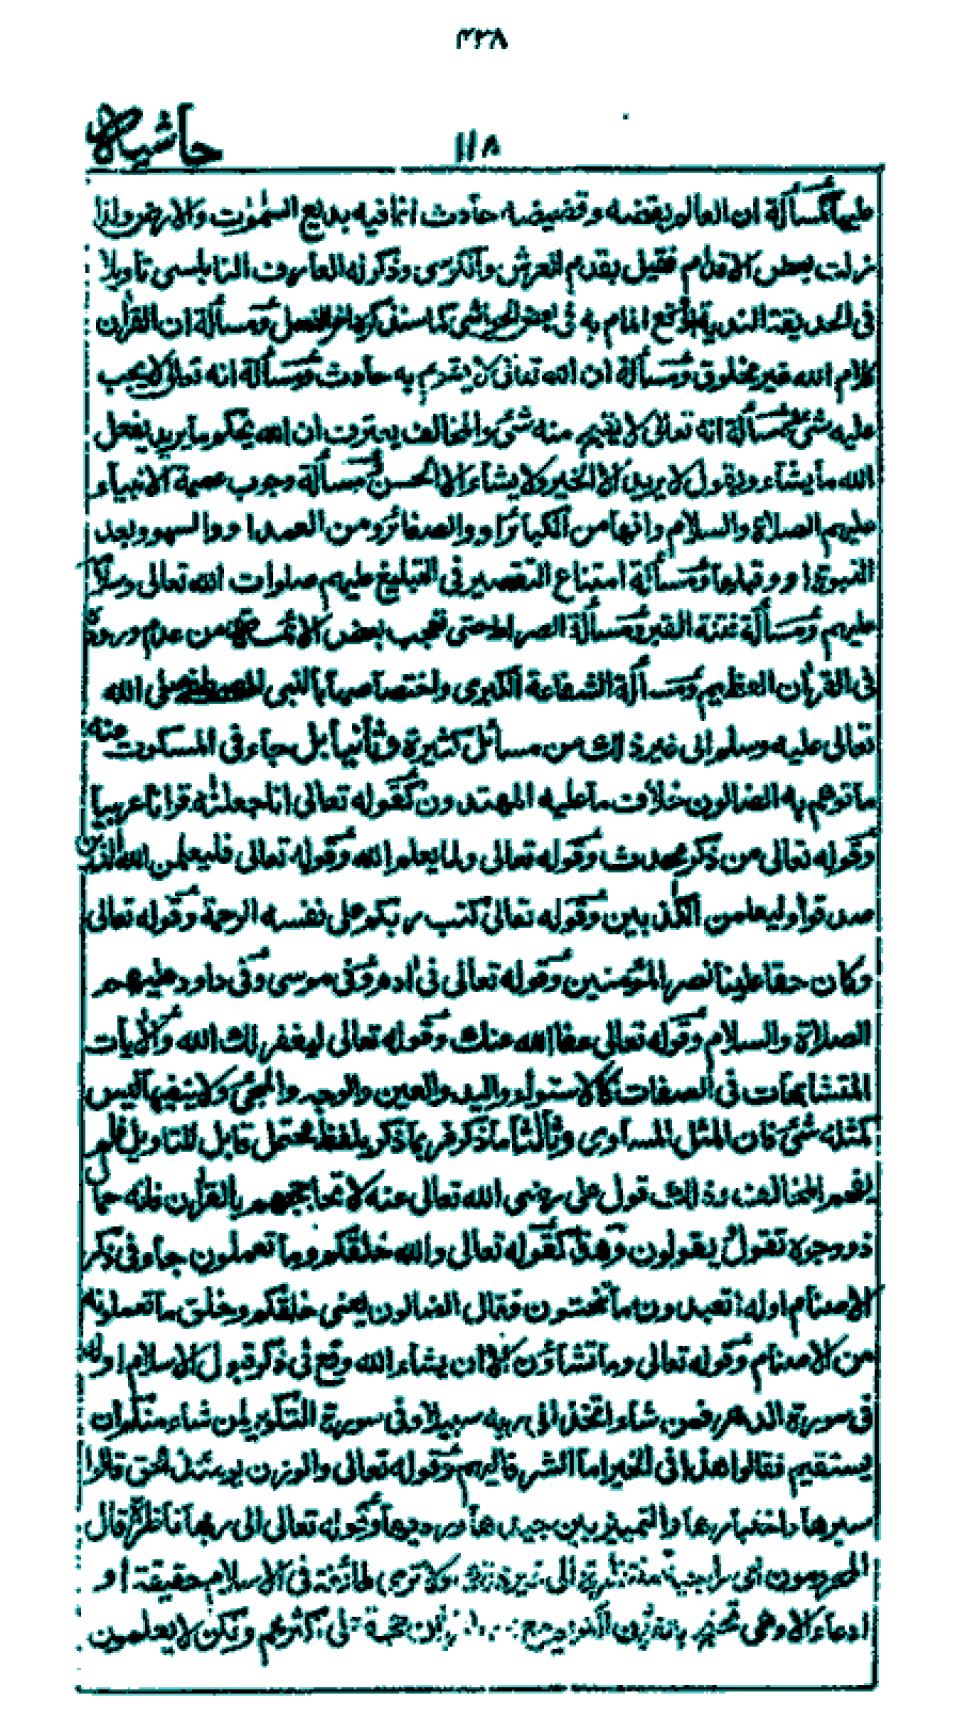 ۴۳۸
حاشیہ
۱۱۸
عليها كمسألة ان العالم بقضه وقضيضه حادث انما فيه بديع السمٰوٰت والارض ولذا
زلت بعض الاقدام فقيل بقدم العرش والكرسي وذكر له العارف النابلسي تأويلا
في الحديقة الندية المام به في بعض الحواشي كما سنذكره ومسألة ان القراٰن
كلام الله غير مخلوق ومسألة ان الله تعالى لا يقوم به حادث ومسألة انه تعالى لا يجب
عليه شئ ومسألة انه تعالى لا يقبح منه شئ والمخالف يعترف ان الله يحكم ما يريد يفعل
الله ما يشاء ويقول لا يريد الا الخير ولا يشاء الا الحسن ومسألة وجوب عصمة الانبياء
عليهم الصلاة والسلام وانها من الكبائر او والصغائر ومن العمد او والسهو وبعد
النبوة او وقبلها ومسألة امتناع التقصير في التبليغ عليهم صلوات الله تعالى وسلامه
عليهم ومسألة فتنة القبر ومسألة الصراط حتى تعجب بعض الائمة من عدم وروده
في القراٰن العظيم ومسألة الشفاعة الكبرى واختصاصها بالنبي المصطفى صلى الله
تعالى عليه وسلم الى غير ذلك من مسائل كثيرة وثانيا بل جاء في المسكوت عنه
ما توهم به الضالون خلاف ما عليه المهتدون كقوله تعالى انا جعلنٰه قراٰنا عربيا
وقوله تعالى من ذكر محدث وقوله تعالى ولما يعلم الله وقوله تعالى فليعلمن الله الذين
صدقوا وليعلمن الكٰذبين وقوله تعالى كتب ربكم على نفسه الرحمة وقوله تعالى
وكان حقا علينا نصر المؤمنين وقوله تعالى في اٰدم وفي موسى وفي داود عليهم
الصلاة والسلام وقوله تعالى عفا الله عنك وقوله تعالى ليغفر لك الله والاٰيات
المتشابهات في الصفات كالاستواء واليد والعين والوجه والمجئ ولا ينفيها ليس
كمثله شئ فان المثل المساوي وثالثا ما ذكر فربما ذكر بلفظ محتمل قابل للتاويل فلم
يفحم المخالف وذلك قول علي رضي الله تعالى عنه لا تحاججهم بالقراٰن فانه حمال
ذو وجوه تقول يقولون وهذا كقوله تعالى والله خلقكم وما تعملون جاء في ذكر
الاصنام اوله اتعبدون ما تنحتون فقال الضالون يعني خلقكم وخلق ما تعملونه
من الاصنام وقوله تعالى وما تشاؤن الا ان يشاء الله وقع في ذكر قبول الاسلام اوله
في سورة الدهر فمن شاء اتخذ الى ربه سبيلا وفي سورة التكوير لمن شاء منكم ان
يستقيم فقالوا هذا في الخير اما الشر فاليهم وقوله تعالى والوزن يومئذ الحق قالوا
سبرها واختبارها والتمييز بين جيدها ورديها وقوله تعالى الى ربها ناظرة قال
المحرومون اي راجية منتظرة الى غير ذلك ولا ترى طائفة في الاسلام حقيقة او
ادعاء الا وهي تحتج بالقراٰن حجة على اكثرهم ولكن لا يعلمون